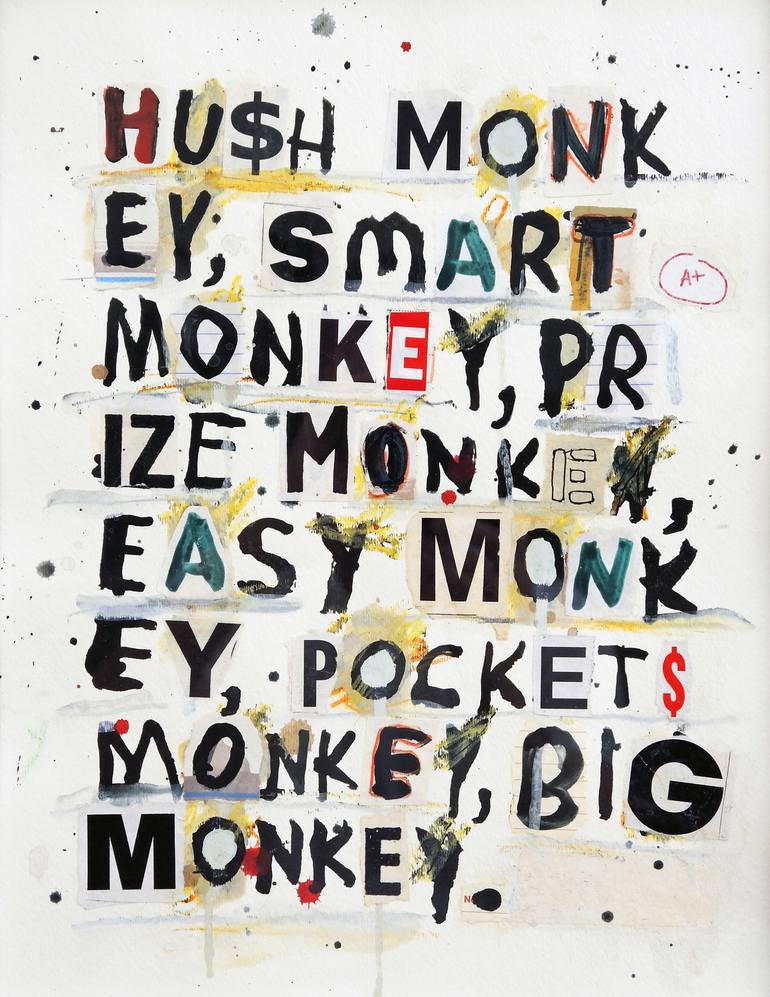 HU$H MONK
EY, SMART
A+
MONKEY, PR
IZE MONKEY,
EASY MONK
EY, POCKET$
MONKEY, BIG
MONKEY.